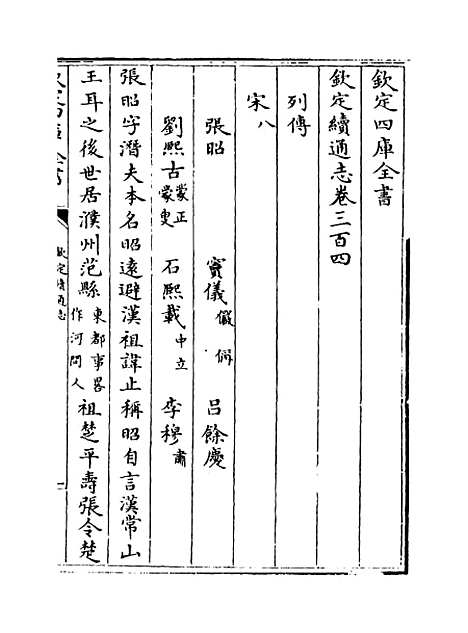 欽定四庫全書
欽定續通志卷三百四
列傳
宋八
張昭 竇儀儼 侢 吕餘慶
劉熙古蒙正 蒙叟 石熙載中立 李穆肅
張昭字潛夫本名昭遠避漢祖諱止稱昭自言漢常山
王耳之後世居濮州范縣東都事畧作河間人祖楚平壽張令楚
欽定續通志